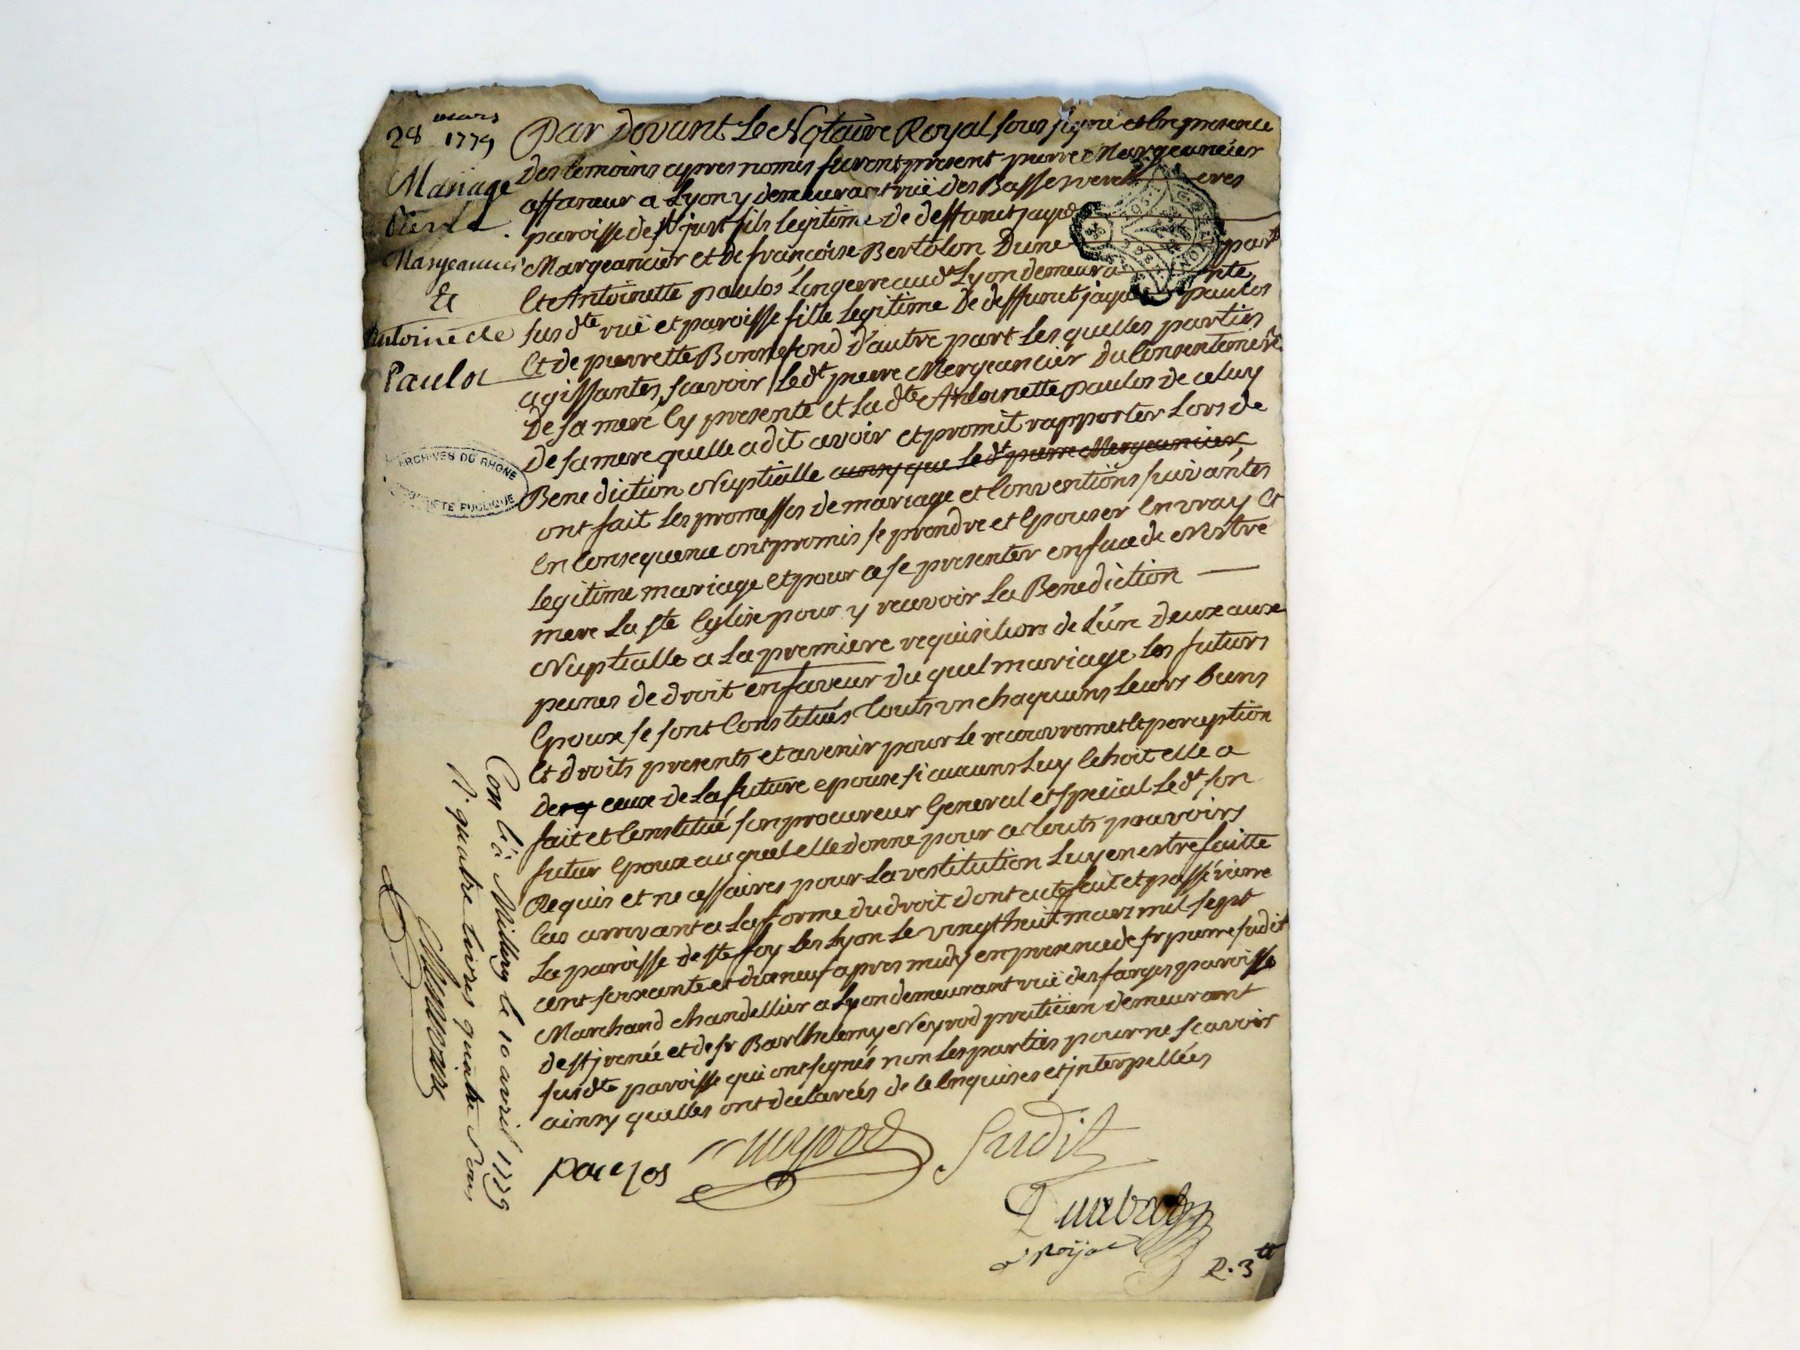 28 mars 1779
Mariage
Pierre
Margeancier
Et
Antoinette
Paulos
Par Devant Le Notaire Royal sous signé et En presence
Des temoins cy apres només furent present pierre Margeancier
affaneur a Lyon y demeurant ruë des Basses verch eres
paroisse de St just fils legitime de deffunct jaque
Margeancier et de françoise Bertolon D'une part
Et Antoinette paulos Lingere aud.t Lyon demeura nte
susd.te ruë et paroisse fille legitime De deffunct jaque paulos
Et de pierrette Bonnefond d'autre part Lesquelles parties
agissantes, scavoir Led.t pierre Mergeancier Du Consentement
De sa mere Cy presente et La d.te Antoinette paulos de celuy
de sa mere quelle a dit avoir et promit rapporter Lors de
Benediction Nuptialle ainsy que Led.t pierre Mergeancier
ont fait Les promesses de mariage et Conventions suivantes
En Consequence ont promis se prendre et Epouser En vray Et
Legitime mariage Et pour ce se presenter en face de Nostre
mere La Ste Eglise pour y recevoir La Benediction
Nuptialle a La premiere requisitions de L'une Deux aux
peines de droit en faveur Du quel mariage Les futurs
Epoux se sont Constitués touts un chaquuns Leurs biens
Et droits presents et avenir pour Le recouvremet et perception
De ceux de La future epouse si aucuns Luy Echoit elle a
fait et Constitué son procureur General et special Led.t son
futur Epoux au quel elle donne pour ce touts pouvoirs
Requis et necessaires pour La restitution Luy en estre faitte
Cas arrivant a La forme du droit dont acte fait et passé riere
La paroisse de Ste foy Les Lyon Le vingt huit mars mil sept
cent soixante et dixneuf apres midy en presence de sr pierre sudit
Marchand chandellier a Lyon demeurant ruë des farges paroisse
de St jrenée et de sr Barthelemy Neyrod praticien demeurant
susd.te paroisse qui ont signés non Les parties pour ne scavoir
ainsy quelles ont declarées de ce Enquises et jnterpellées
paulos Neyrod Sudit
Royal
R. 3 tt
Con.lé à Millery le 10 avril 1779
R. quatre livres quatre sous
ARCHIVES DU RHONE
PROPRIETE PUBLIQUE